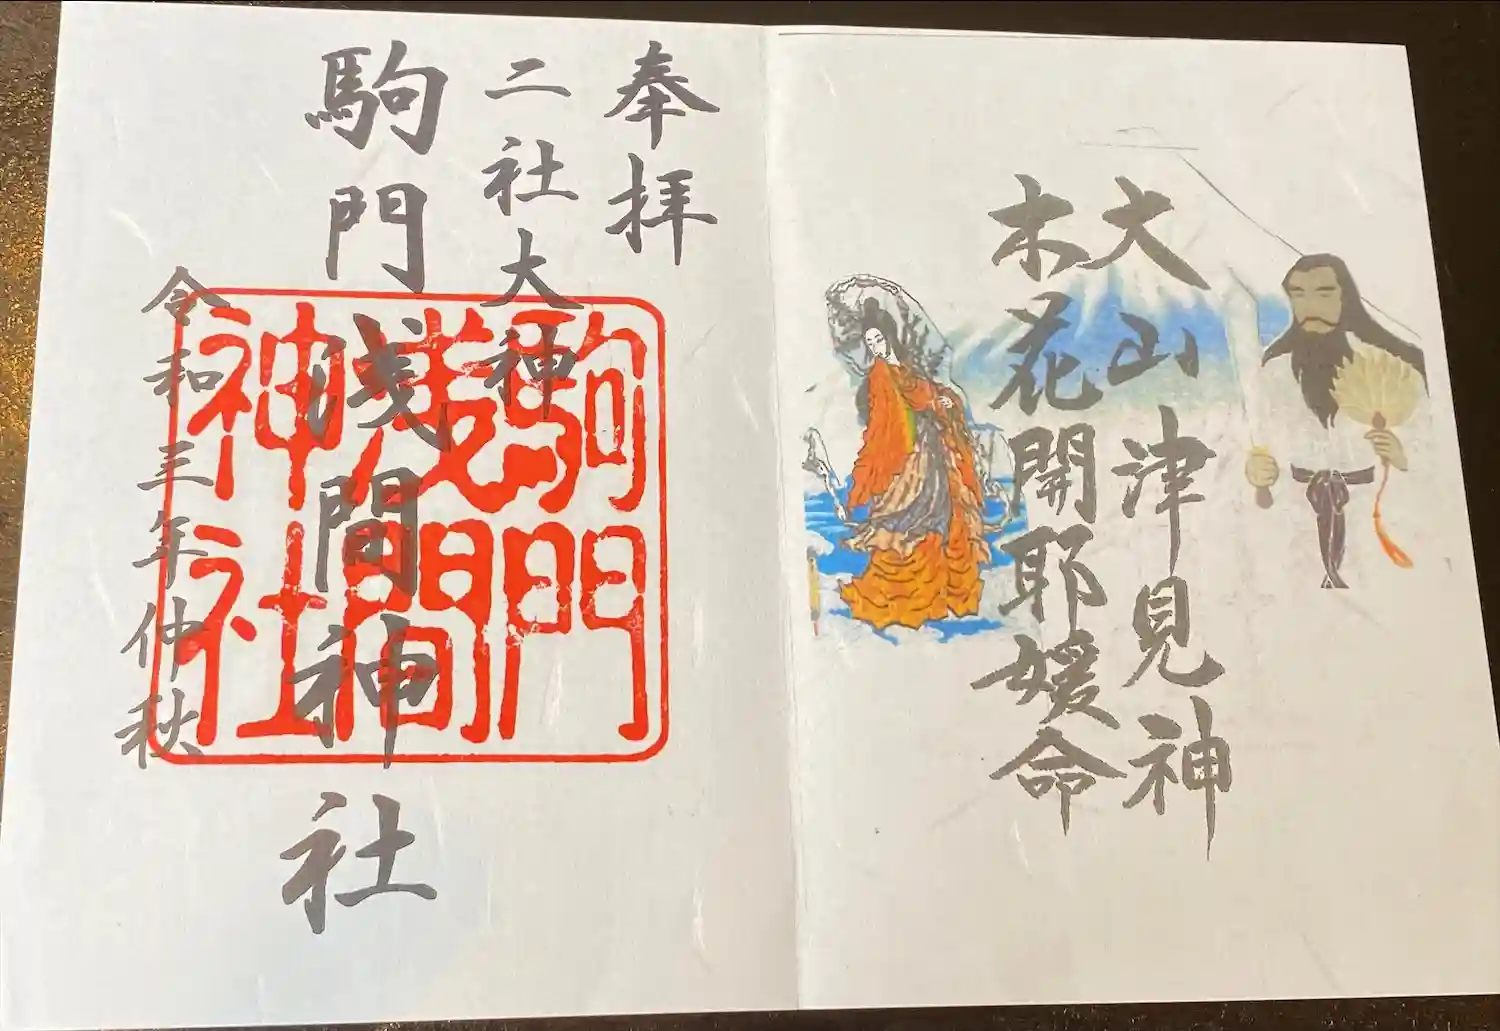 大山津見神
木花開耶媛命
奉拝
二社大神
駒門浅間神社
令和三年仲秋
駒門
浅間
神社